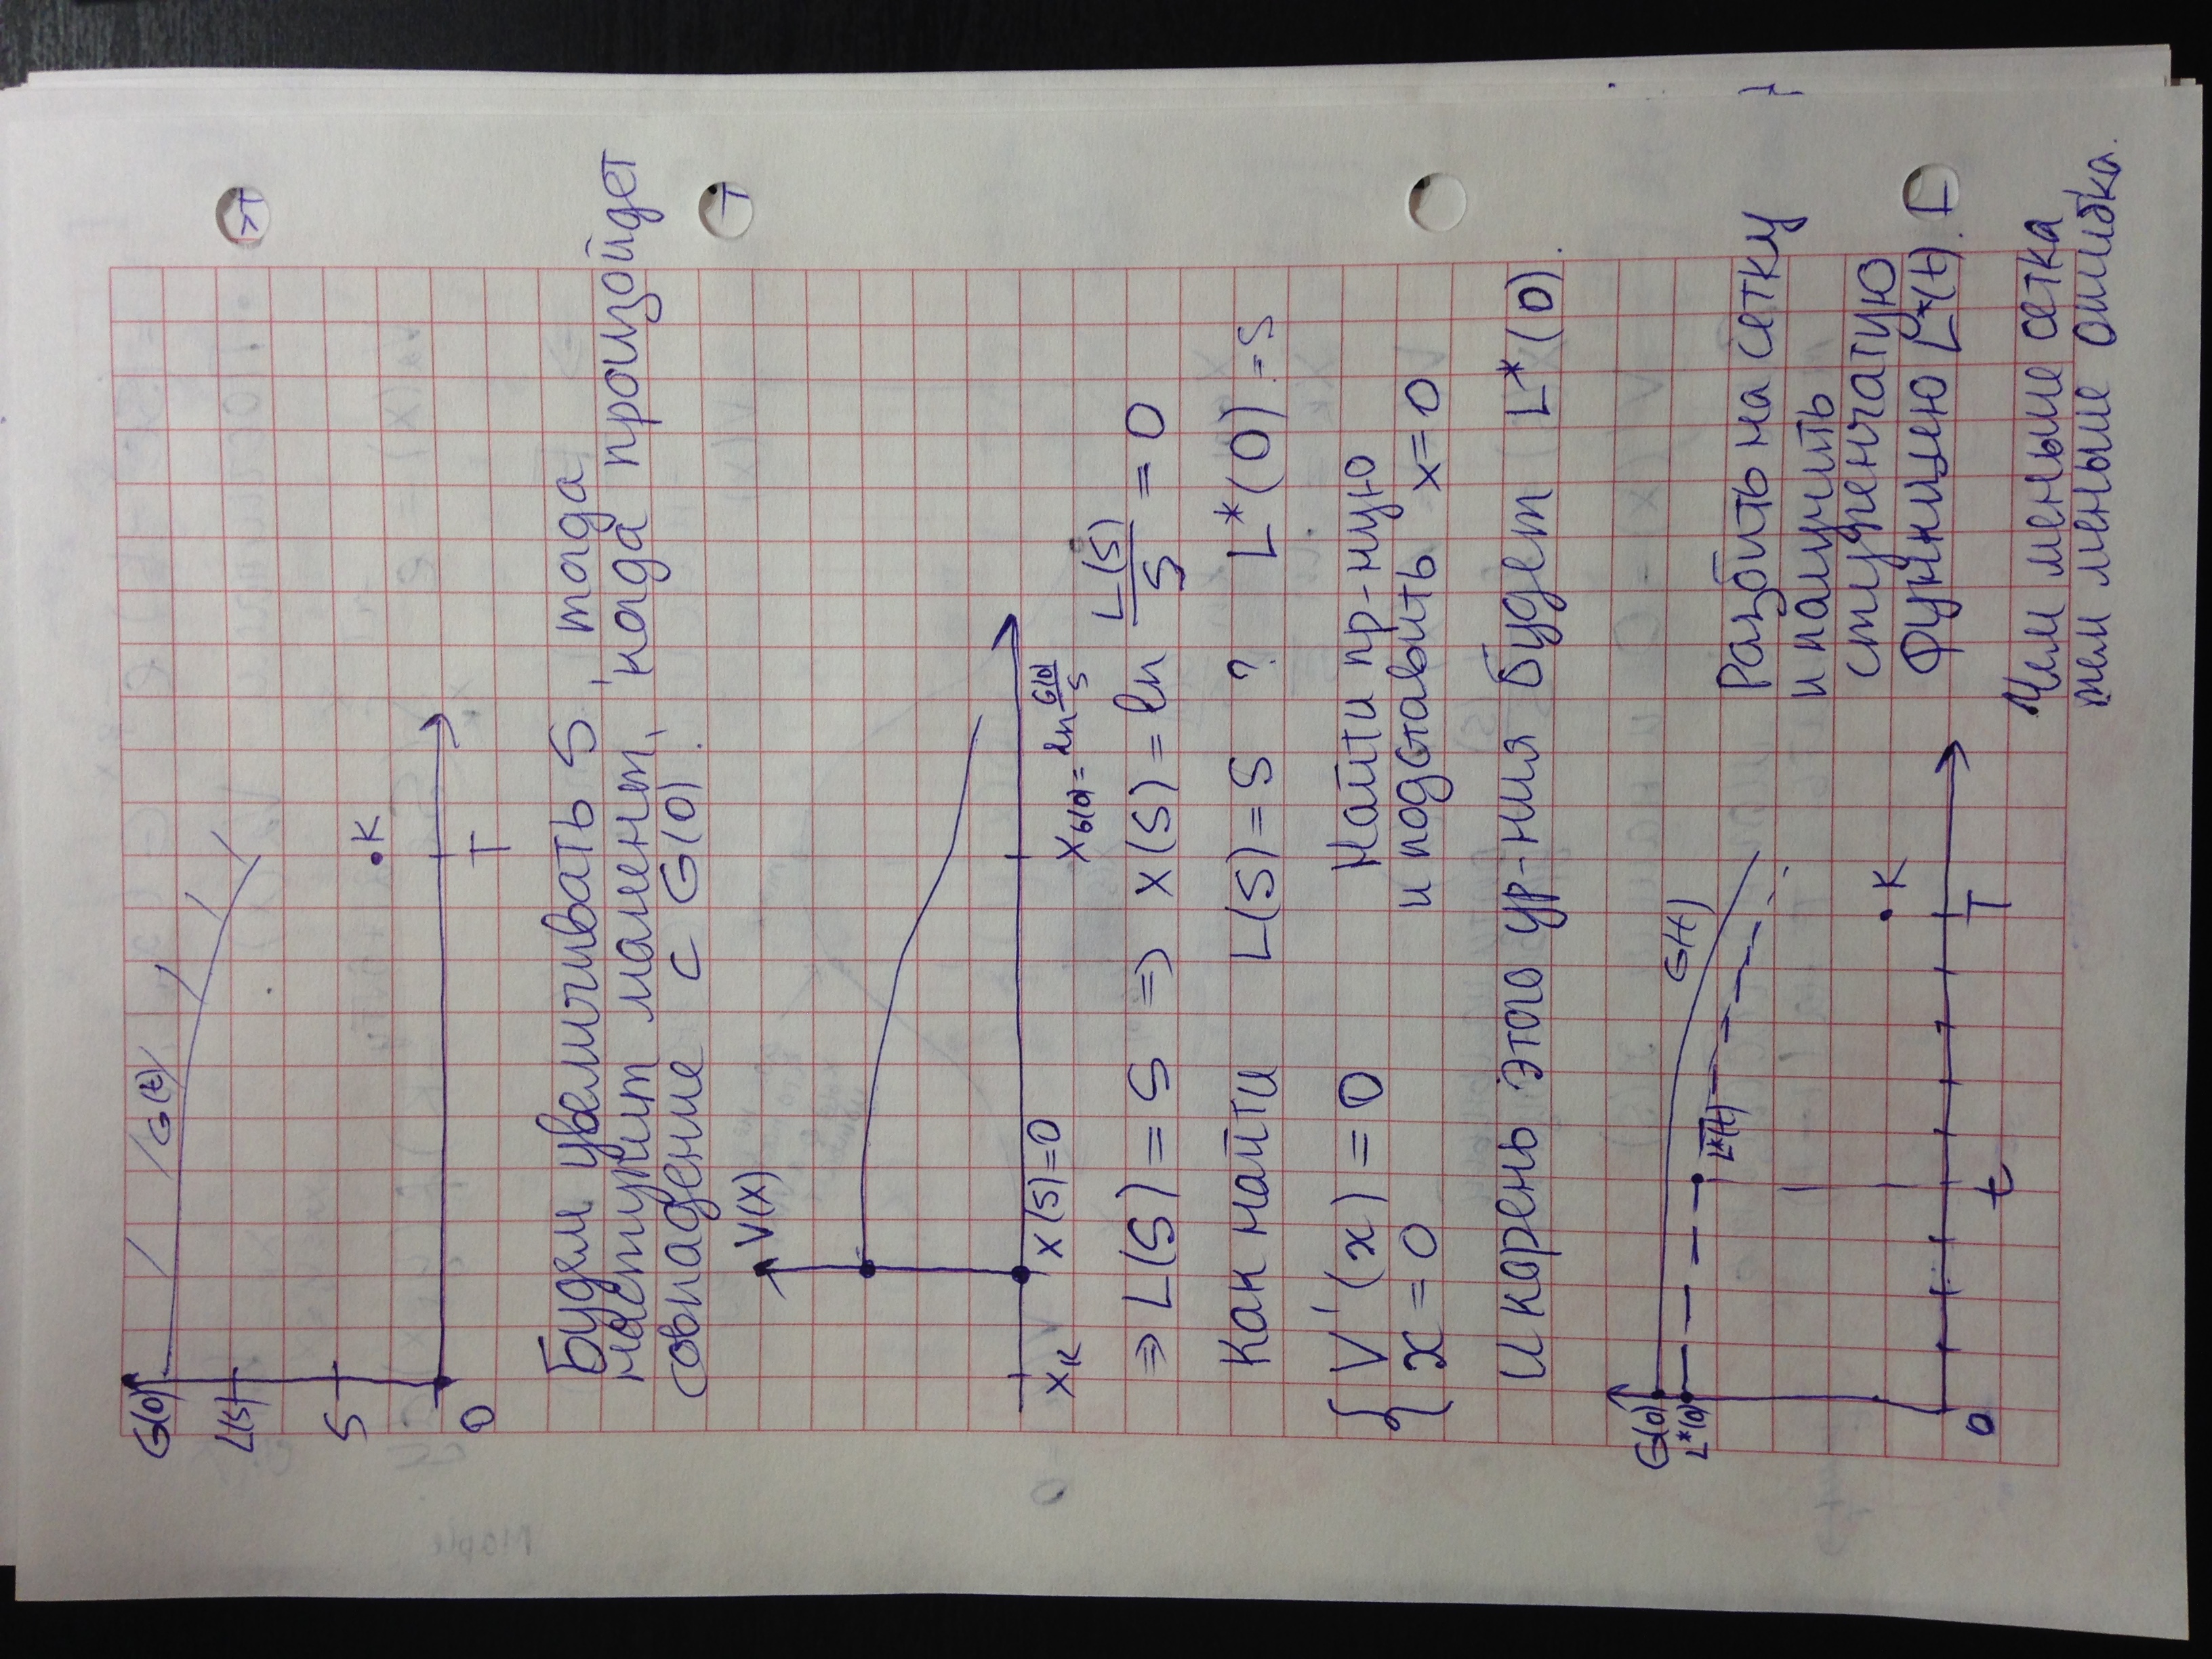 G(0)
G(t)
L(S)
S
K
0
T
Будем увеличивать S, тогда
наступит момент, когда произойдет
совпадение с G(0).
V(x)
x_K
x(S)=0
x_{G(0)} = ln G(0)/S
⇒ L(S) = S ⇒ x(S) = ln L(S)/S = 0
Как найти L(S) = S ? L*(0) = S
{ V'(x) = 0
x = 0
Найти пр-ную
и подставить x=0
И корень этого ур-ния будет L*(0).
G(0)
L*(0)
G(t)
L*(t)
K
0
t
T
Разбить на сетку
и получить
ступенчатую
функцию L*(t).
Чем меньше сетка
тем меньше ошибка.